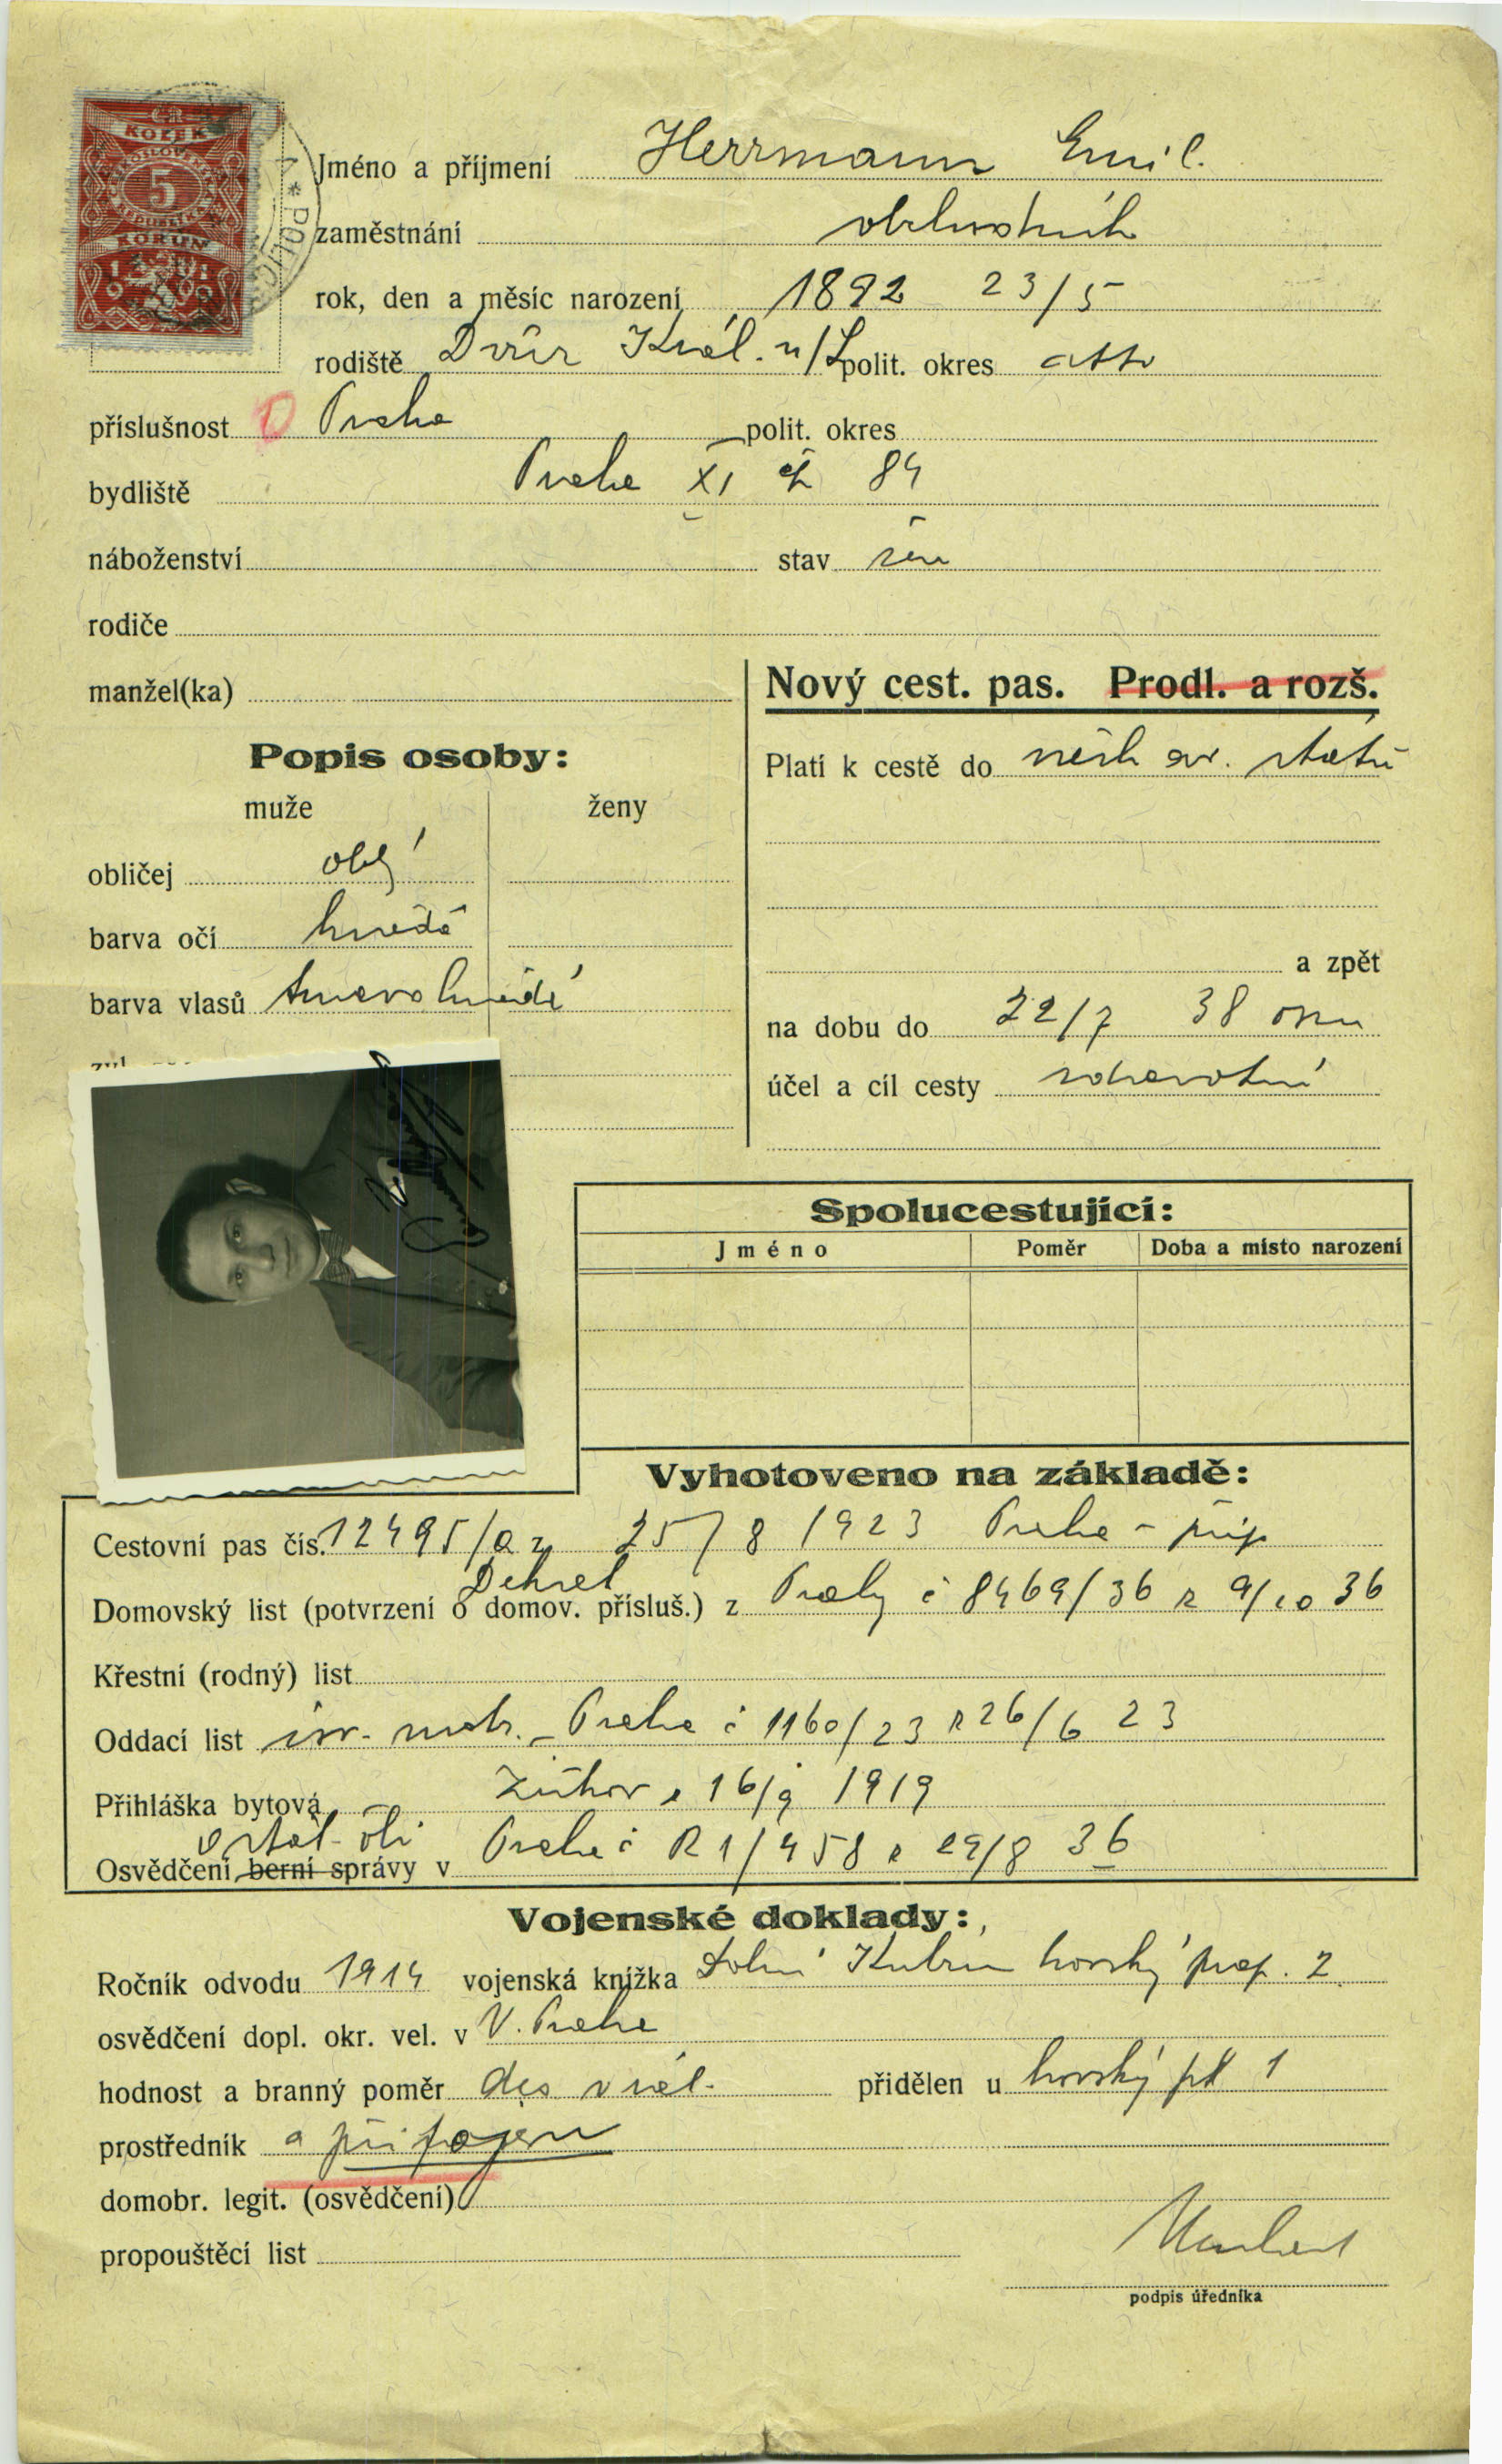 KOLEK
5
KORUN
Jméno a příjmení Herrmann Emil.
zaměstnání obchodník
rok, den a měsíc narození 1892 23/5
rodiště Dvůr Král. n/L polit. okres atto
příslušnost Praha polit. okres
bydliště Praha XI čp 84
náboženství stav žen
rodiče
manžel(ka)
Nový cest. pas. Prodl. a rozš.
Popis osoby:
muže ženy
obličej oblý
barva očí hnědé
barva vlasů tmavohnědé
Platí k cestě do všech ev. států
a zpět
na dobu do 22/7 38
účel a cíl cesty zdravotní
Spolucestující:
Jméno Poměr Doba a místo narození
Vyhotoveno na základě:
Cestovní pas čís. 12495/a z 25/8 1923 Praha -
Dekret
Domovský list (potvrzení o domov. přísluš.) z Prahy č 8469/36 z 9/10 36
Křestní (rodný) list
Oddací list isr. matr. - Praha č 1160/23 z 26/6 23
Přihláška bytová Žižkov z 16/9 1919
o stát. obč
Osvědčení berní správy v Praha č R1/458 z 29/8 36
Vojenské doklady:
Ročník odvodu 1914 vojenská knížka Dolní Kubín horský prap. 2.
osvědčení dopl. okr. vel. v V. Praha
hodnost a branný poměr des v zál. přidělen u horský pl 1
prostředník a připojen
domobr. legit. (osvědčení)
propouštěcí list
podpis úředníka